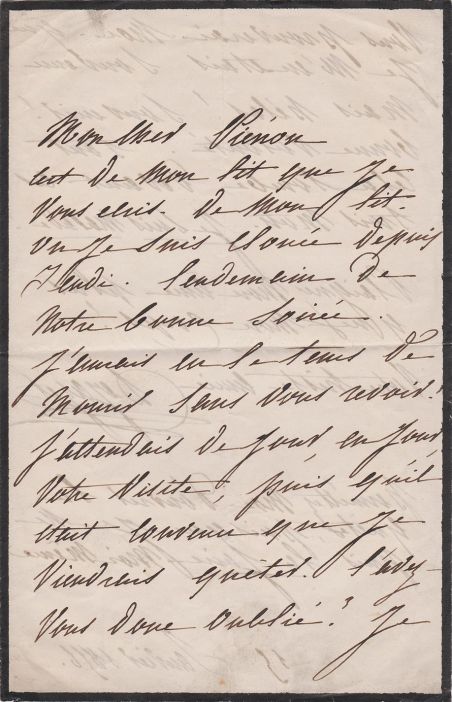 Mon cher Piénon
c'est de mon lit que je
vous écris. de mon lit.
où je suis clouée depuis
Jeudi. lendemain de
notre bonne soirée.
j'aurais eu le tems de
mourir sans vous revoir!
j'attendais de jour en jour
votre visite, puis qu'il
était convenu que je
viendrais quêter. l'avez-
vous donc oublié? je